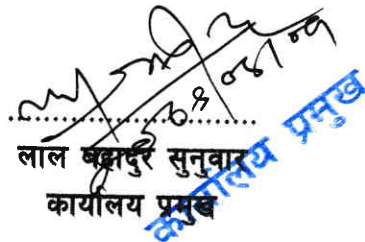 लाल बहादुर सुनुवार
कार्यालय प्रमुख
कार्यालय प्रमुख